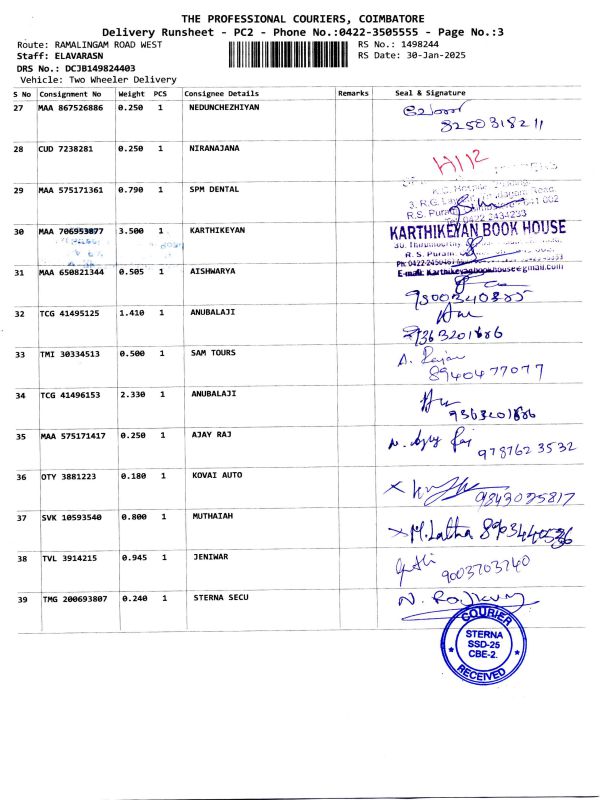 THE PROFESSIONAL COURIERS, COIMBATORE
Delivery Runsheet - PC2 - Phone No.:0422-3505555 - Page No.:3
Route: RAMALINGAM ROAD WEST RS No.: 1498244
Staff: ELAVARASN RS Date: 30-Jan-2025
DRS No.: DCJB149824403
Vehicle: Two Wheeler Delivery
S No Consignment No Weight PCS Consignee Details Remarks Seal & Signature
27 MAA 867526886 0.250 1 NEDUNCHEZHIYAN
8250318211
28 CUD 7238281 0.250 1 NIRANAJANA
H112
29 MAA 575171361 0.790 1 SPM DENTAL
R.S. Puram
0422 2434233
30 MAA 706953877 3.500 1 KARTHIKEYAN
KARTHIKEYAN BOOK HOUSE
R. S. Puram
E-mail: karthikeyanbookhouse@gmail.com
31 MAA 650821344 0.505 1 AISHWARYA
9500340885
32 TCG 41495125 1.410 1 ANUBALAJI
9363201686
33 TMI 30334513 0.500 1 SAM TOURS
A. Rajan
8940477077
34 TCG 41496153 2.330 1 ANUBALAJI
9363201686
35 MAA 575171417 0.250 1 AJAY RAJ
N. Ajay Raj
9787623532
36 OTY 3881223 0.180 1 KOVAI AUTO
9843025817
37 SVK 10593540 0.800 1 MUTHAIAH
M. Latha 8903440536
38 TVL 3914215 0.945 1 JENIWAR
9003703740
39 TMG 200693807 0.240 1 STERNA SECU
N. Rajkumar
COURIER
STERNA
SSD-25
CBE-2.
RECEIVED